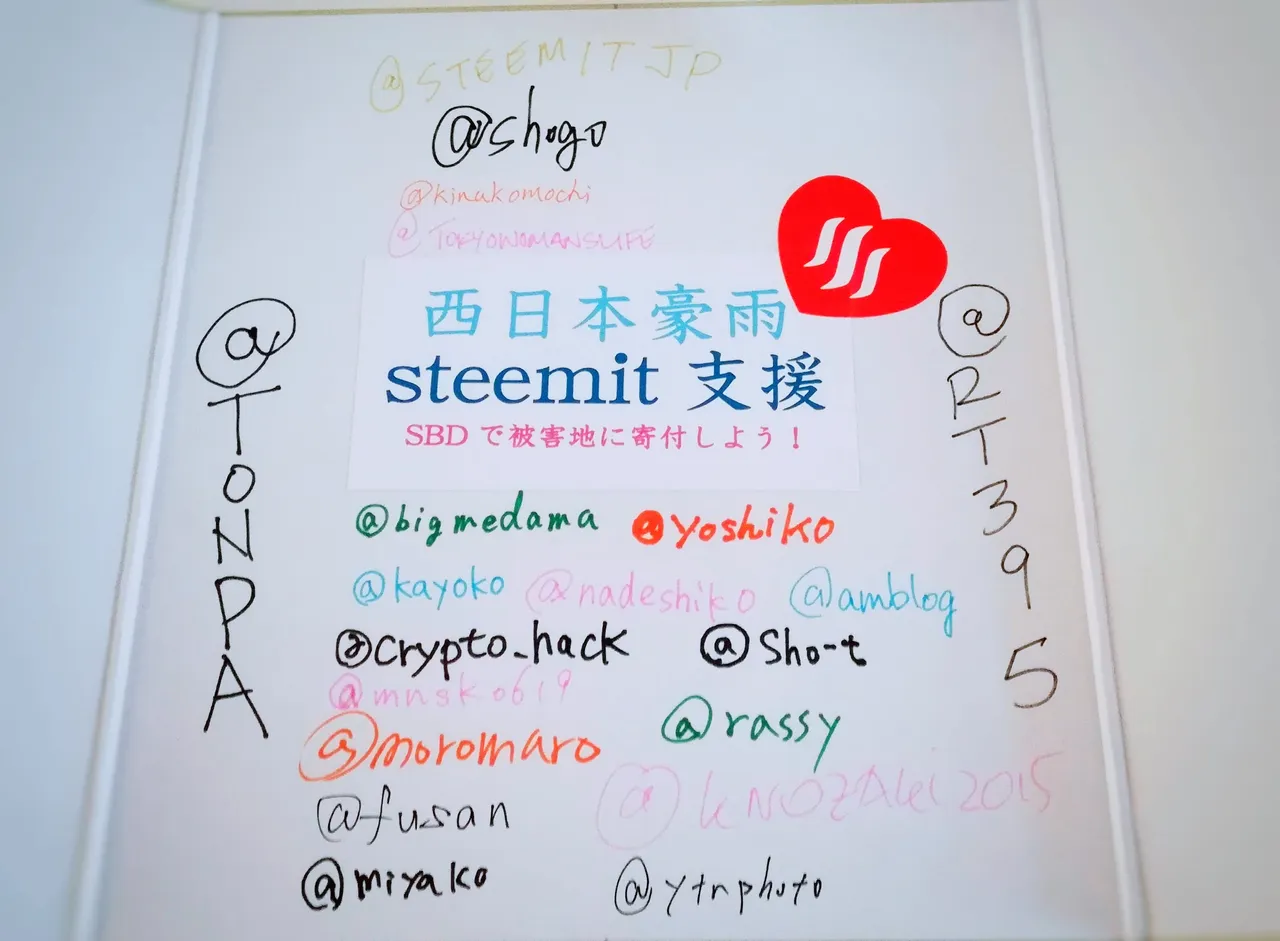 @STEEMITJP
@shogo
@kinakomochi
@TOKYOWOMANSLIFE
西日本豪雨
steemit 支援
SBD で被害地に寄付しよう！
@TONPA
@RT395
@bigmedama @yoshiko
@kayoko @nadeshiko @amblog
@crypto_hack @Sho-t
@mnsk0619
@noromaro @rassy
@fusan @kNOZAki2015
@miyako @ytrphoto